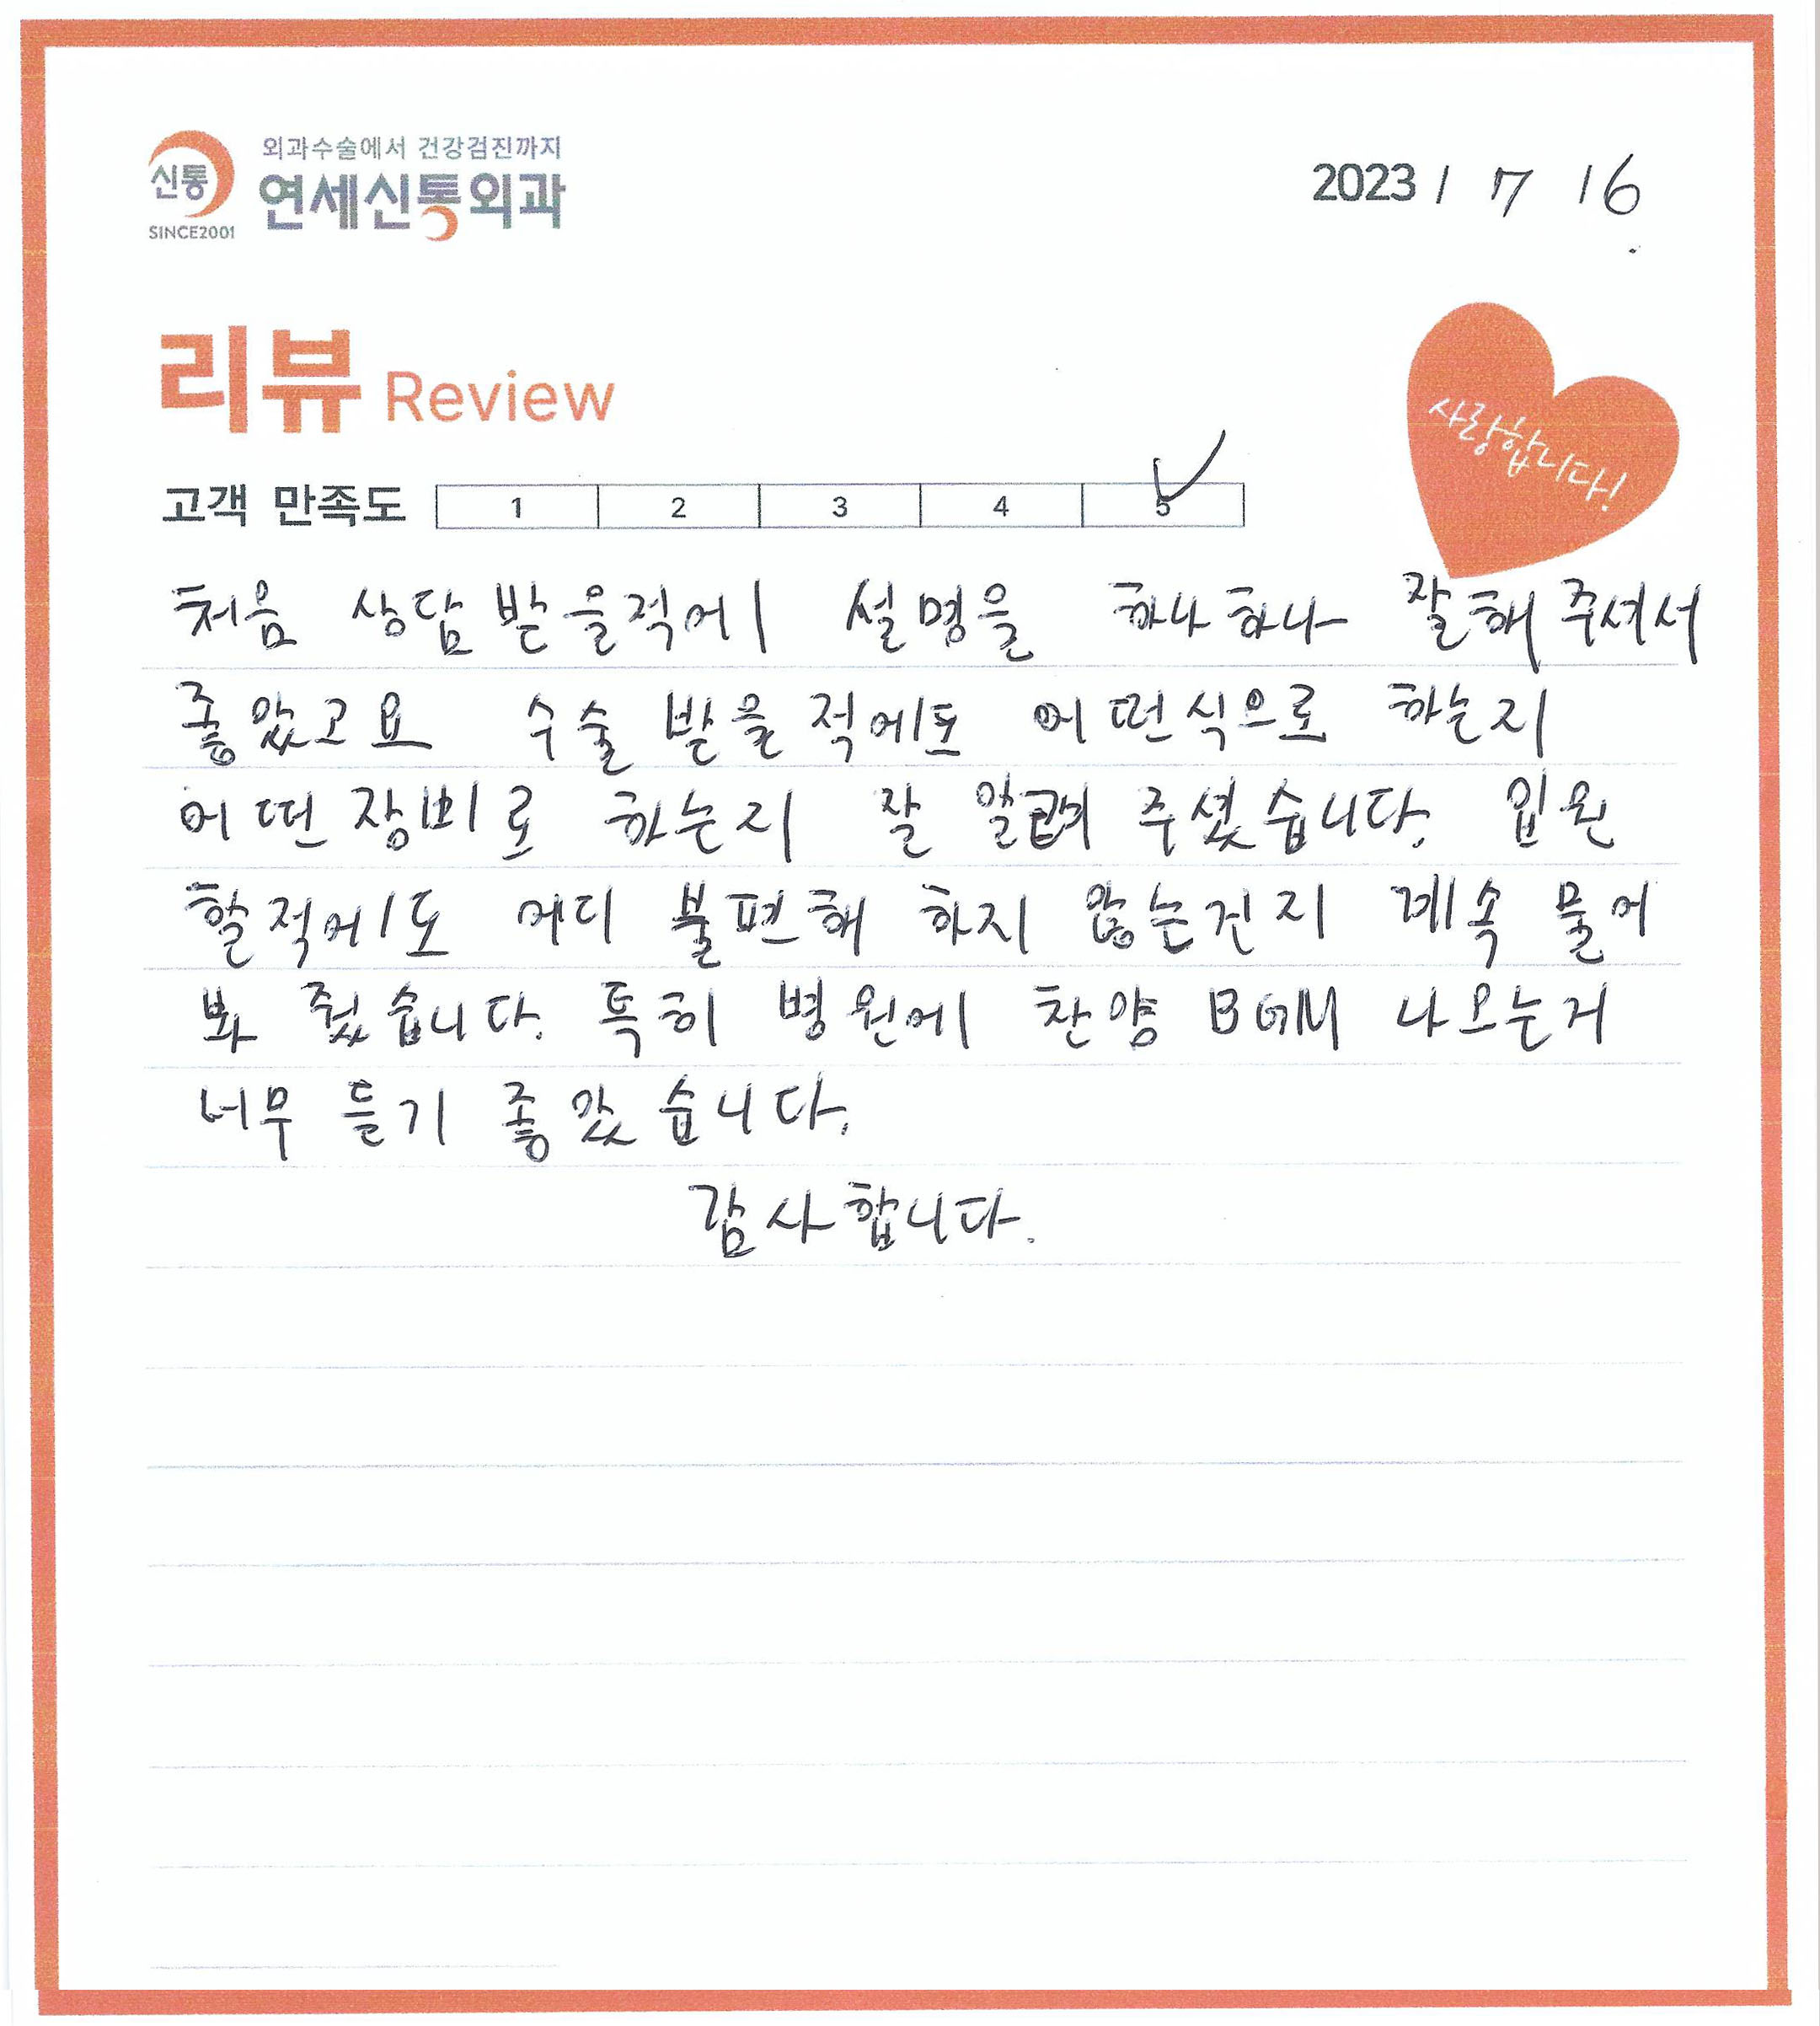 신통
SINCE2001
외과수술에서 건강검진까지
연세신통외과
2023 / 7 16.
리뷰 Review
사랑합니다!
고객 만족도 1 2 3 4 5
처음 상담 받을적에 설명을 하나하나 잘해 주셔서
좋았고요 수술 받을 적에도 어떤식으로 하는지
어떤 장비로 하는지 잘 알려 주셨습니다. 입원
할적에도 어디 불편해 하지 않는건지 계속 물어
봐 줬습니다. 특히 병원에 찬양 BGM 나오는거
너무 듣기 좋았습니다.
감사합니다.